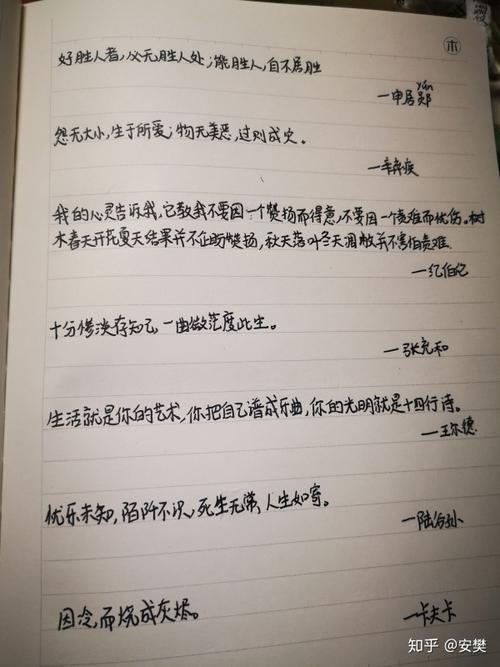 木
好胜人者，必无胜人处；能胜人，自不居胜
yún
—申居郧
怨无大小，生于所爱；物无美恶，过则成灾。
—辛弃疾
我的心灵告诉我，它教我不要因一个赞扬而得意，不要因一个责难而忧伤。树
木春天开花夏天结果并不企盼赞扬，秋天落叶冬天凋敝并不害怕责难.
—纪伯伦
十分惨淡存知己，一曲微茫度此生。
—张充和
生活就是你的艺术，你把自己谱成乐曲，你的光明就是十四行诗。
—王尔德
优乐未知，陌阡不识，死生无常，人生如寄。
—陆治孙
因冷，而烧成灰烬。
—卡夫卡
知乎 @安樊